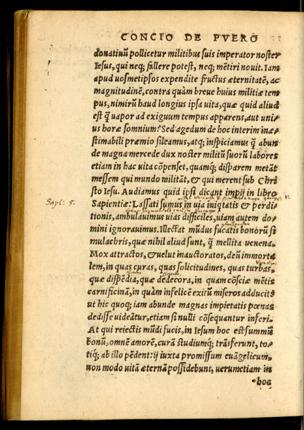 CONCIO DE PVERO
donatiuũ pollicetur militibus suis imperator noster
Iesus, qui neq; fallere potest, neq; mẽtiri nouit. Iam
apud uosmetipsos expendite fructus æternitatẽ, ac
magnitudinẽ, contra quàm breue huius militiæ tem
pus, nimirũ haud longius ipsa uita, quæ quid aliud
est ꝙ uapor ad exiguum tempus apparens, aut uni/
us horæ somnium? Sed agedum de hoc interim inæ
stimabili præmio sileamus, atq; inspiciamus ꝙ abun
de magna mercede dux noster militũ suorũ labores
etiam in hac uita cõpenset, quamq; disparem metãt
messem qui mundo militãt, & qui merent sub Chri
sto Iesu. Audiamus quid ipsi dicant impij in libro
Sapientiæ: Lassati sumus in uia iniqtatis & perdi
Sapi: 5.
tionis, ambulauimus uias difficiles, uiam autem do
mini ignorauimus. Illectat mũdus fucatis bonorũ si
mulachris, quæ nihil aliud sunt, ꝙ mellita uenena.
Mox attractos, & uelut inauctoratos, deũ immorta
lem, in quas curas, quas solicitudines, quas turbas,
quæ dispẽdia, quæ dedecora, in quam cõsciẽ mẽtis
carnificinã, in quàm infelicẽ exitũ miseros adducit?
ut hic quoq; iam abunde magnas impietatis pœnas
dedisse uideãtur, etiam si nulli cõsequantur inferi.
At qui reiectis mũdi fucis, in Iesum hoc est summũ
bonũ, omnẽ amorẽ, curã studiumq; trãsferunt, to/
tiq; ab illo pẽdent: ij iuxta promissum euãgelicum,
non modo uitã æternã possidebunt, uerumetiam in
hoc